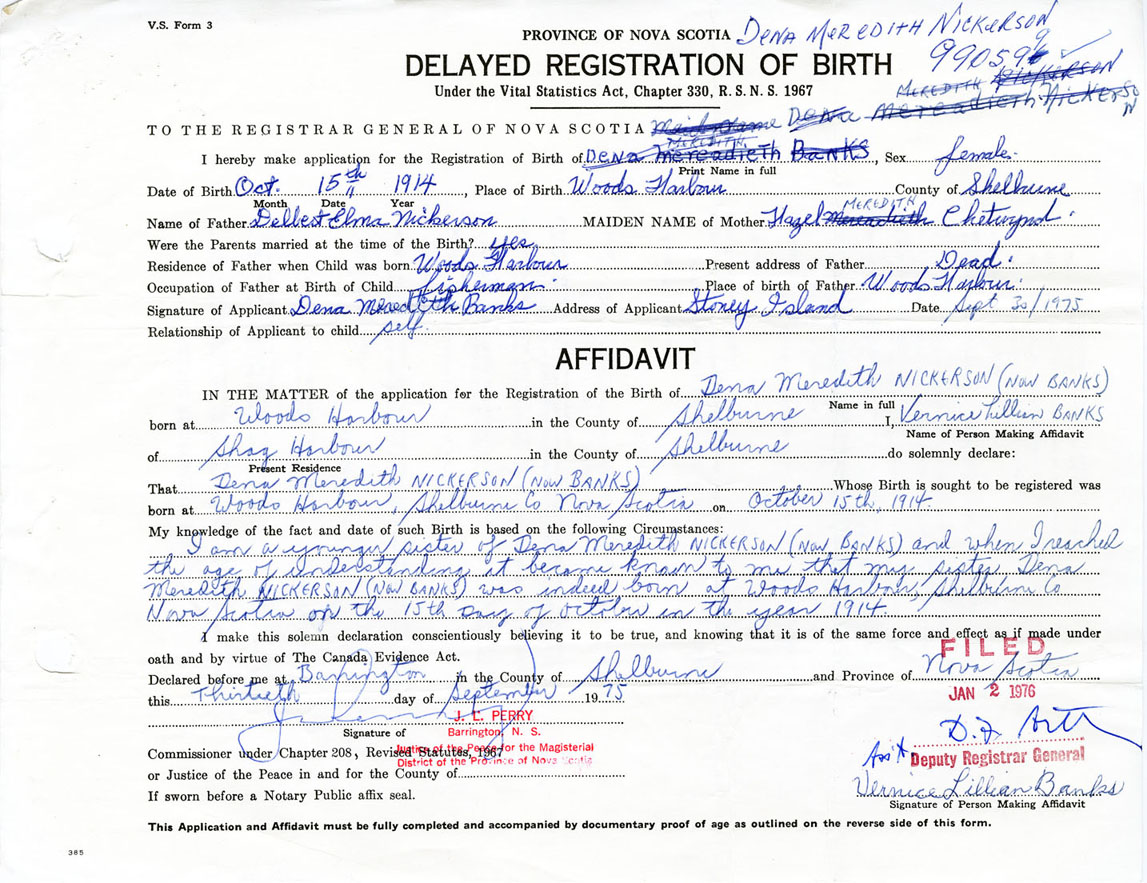 V.S. Form 3
PROVINCE OF NOVA SCOTIA DENA MEREDITH NICKERSON
990596
DELAYED REGISTRATION OF BIRTH
MEREDITH NICKERSON
Under the Vital Statistics Act, Chapter 330, R.S.N.S. 1967
TO THE REGISTRAR GENERAL OF NOVA SCOTIA Maiden Name Dena Meredieth Nickerson
MEREDITH
I hereby make application for the Registration of Birth of Dena Meredieth Banks, Sex female.
Print Name in full
Date of Birth Oct. 15th 1914, Place of Birth Woods Harbour County of Shelburne
Month Date Year
MEREDITH
Name of Father Delbert Elma Nickerson MAIDEN NAME of Mother Hazel Meredieth Chetwynd.
Were the Parents married at the time of the Birth? yes
Residence of Father when Child was born Woods Harbour Present address of Father Dead.
Occupation of Father at Birth of Child fisherman. Place of birth of Father Woods Harbour.
Signature of Applicant Dena Meredith Banks Address of Applicant Stoney Island Date Sept 30/1975
Relationship of Applicant to child self.
AFFIDAVIT
IN THE MATTER of the application for the Registration of the Birth of Dena Meredith NICKERSON (NOW BANKS)
Name in full
born at Woods Harbour in the County of Shelburne I, Vernice Lillian BANKS
Name of Person Making Affidavit
of Shag Harbour in the County of Shelburne do solemnly declare:
Present Residence
That Dena Meredith NICKERSON (NOW BANKS) Whose Birth is sought to be registered was
born at Woods Harbour, Shelburne Co Nova Scotia on October 15th, 1914.
My knowledge of the fact and date of such Birth is based on the following Circumstances:
I am a younger sister of Dena Meredith NICKERSON (NOW BANKS) and when I reached
the age of understanding it became known to me that my sister Dena
Meredith NICKERSON (NOW BANKS) was indeed born at Woods Harbour, Shelburne Co
Nova Scotia on the 15th Day of October in the year 1914.
I make this solemn declaration conscientiously believing it to be true, and knowing that it is of the same force and effect as if made under
oath and by virtue of The Canada Evidence Act.
FILED
Declared before me at Barrington in the County of Shelburne and Province of Nova Scotia
this Thirtieth day of September 1975
JAN 2 1976
J. L. PERRY
Signature of Barrington, N. S.
Commissioner under Chapter 208, Revised Statutes, 1967
Justice of the Peace for the Magisterial
District of the Province of Nova Scotia
Ass't Deputy Registrar General
or Justice of the Peace in and for the County of
Vernice Lillian Banks
If sworn before a Notary Public affix seal.
Signature of Person Making Affidavit
This Application and Affidavit must be fully completed and accompanied by documentary proof of age as outlined on the reverse side of this form.
385